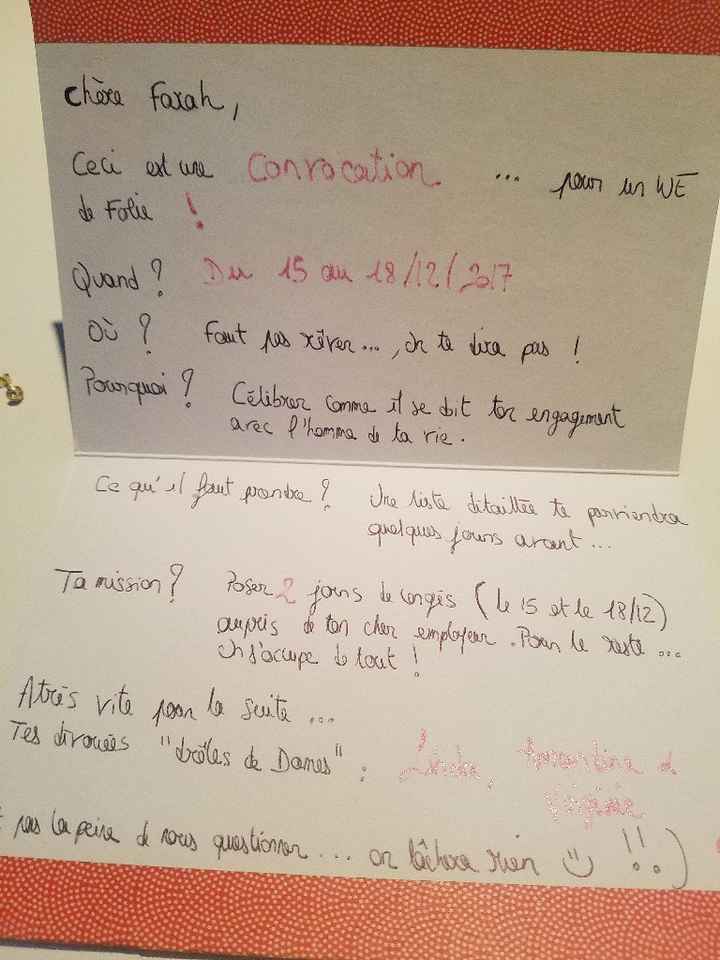 Chère Farah,
Ceci est une Convocation ... pour un WE
de Folie !
Quand ? Du 15 au 18/12/2017
Où ? Faut pas rêver..., on te dira pas !
Pourquoi ? Célébrer comme il se doit ton engagement
avec l'homme de ta vie.
Ce qu'il faut prendre ? Une liste détaillée te parviendra
quelques jours avant...
Ta mission ? Poser 2 jours de congés (le 15 et le 18/12)
auprès de ton cher employeur. Pour le reste ...
On s'occupe de tout !
A très vite pour la suite ...
Tes dévouées "drôles de Dames" : Linda, Amandine &
Virginie
pas la peine de nous questionner... on lâchera rien !!!)